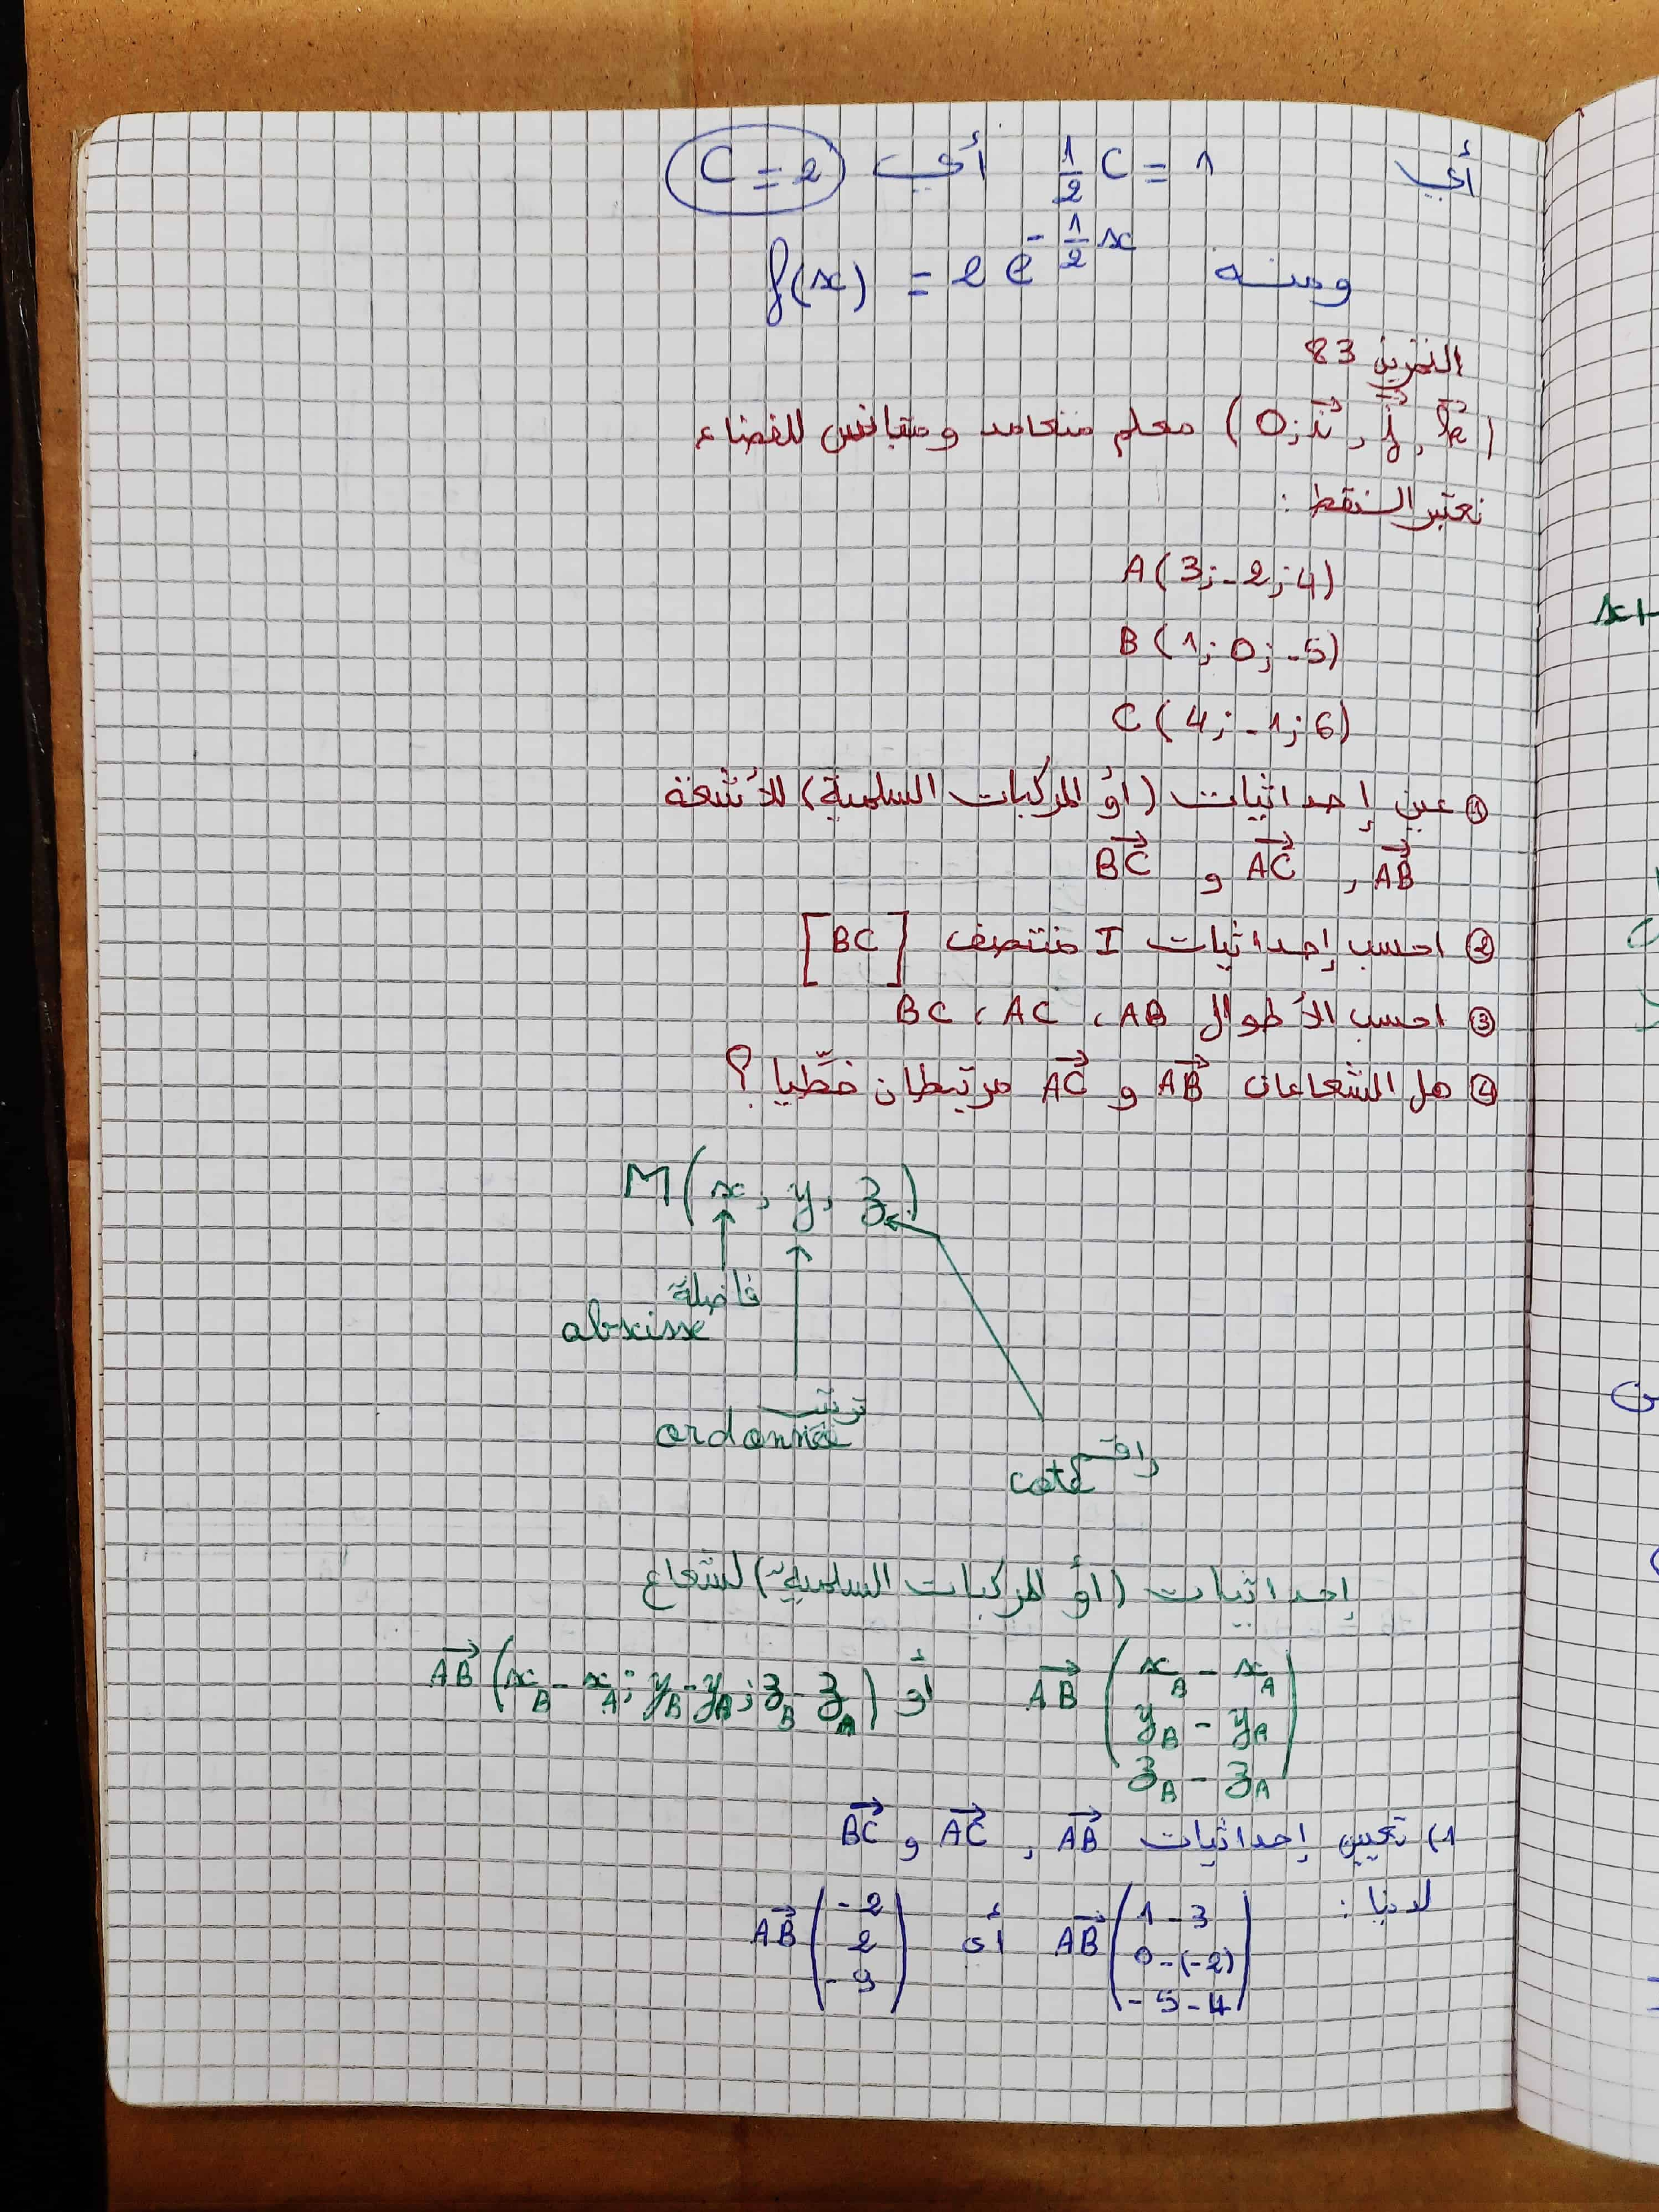 أي $\frac{1}{2}C = 1$ أي $C = 2$
ومنه $f(x) = 2e^{-\frac{1}{2}x}$
التمرين 83
$(O; \vec{i}, \vec{j}, \vec{k})$ معلم متعامد ومتجانس للفضاء
نعتبر النقط :
A(3; -2; 4)
B(1; 0; -5)
C(4; -1; 6)
① عين إحداثيات (أو المركبات السلمية) للأشعة
$\vec{AB}$ , $\vec{AC}$ و $\vec{BC}$
② احسب إحداثيات I منتصف [BC]
③ احسب الأطوال AB ، AC ، BC
④ هل الشعاعان $\vec{AB}$ و $\vec{AC}$ مرتبطان خطّيا ؟
M(x, y, z)
فاصلة
abscisse
ترتيب
ordonnée
راقم
cote
إحداثيات (أو المركبات السلمية) لشعاع
$\vec{AB} \begin{pmatrix} x_B - x_A \\ y_B - y_A \\ z_B - z_A \end{pmatrix}$ أو $\vec{AB} (x_B - x_A; y_B - y_A; z_B - z_A)$
1) تعيين إحداثيات $\vec{AB}$ , $\vec{AC}$ و $\vec{BC}$
لدينا : $\vec{AB} \begin{pmatrix} 1 - 3 \\ 0 - (-2) \\ -5 - 4 \end{pmatrix}$ أي $\vec{AB} \begin{pmatrix} -2 \\ 2 \\ -9 \end{pmatrix}$